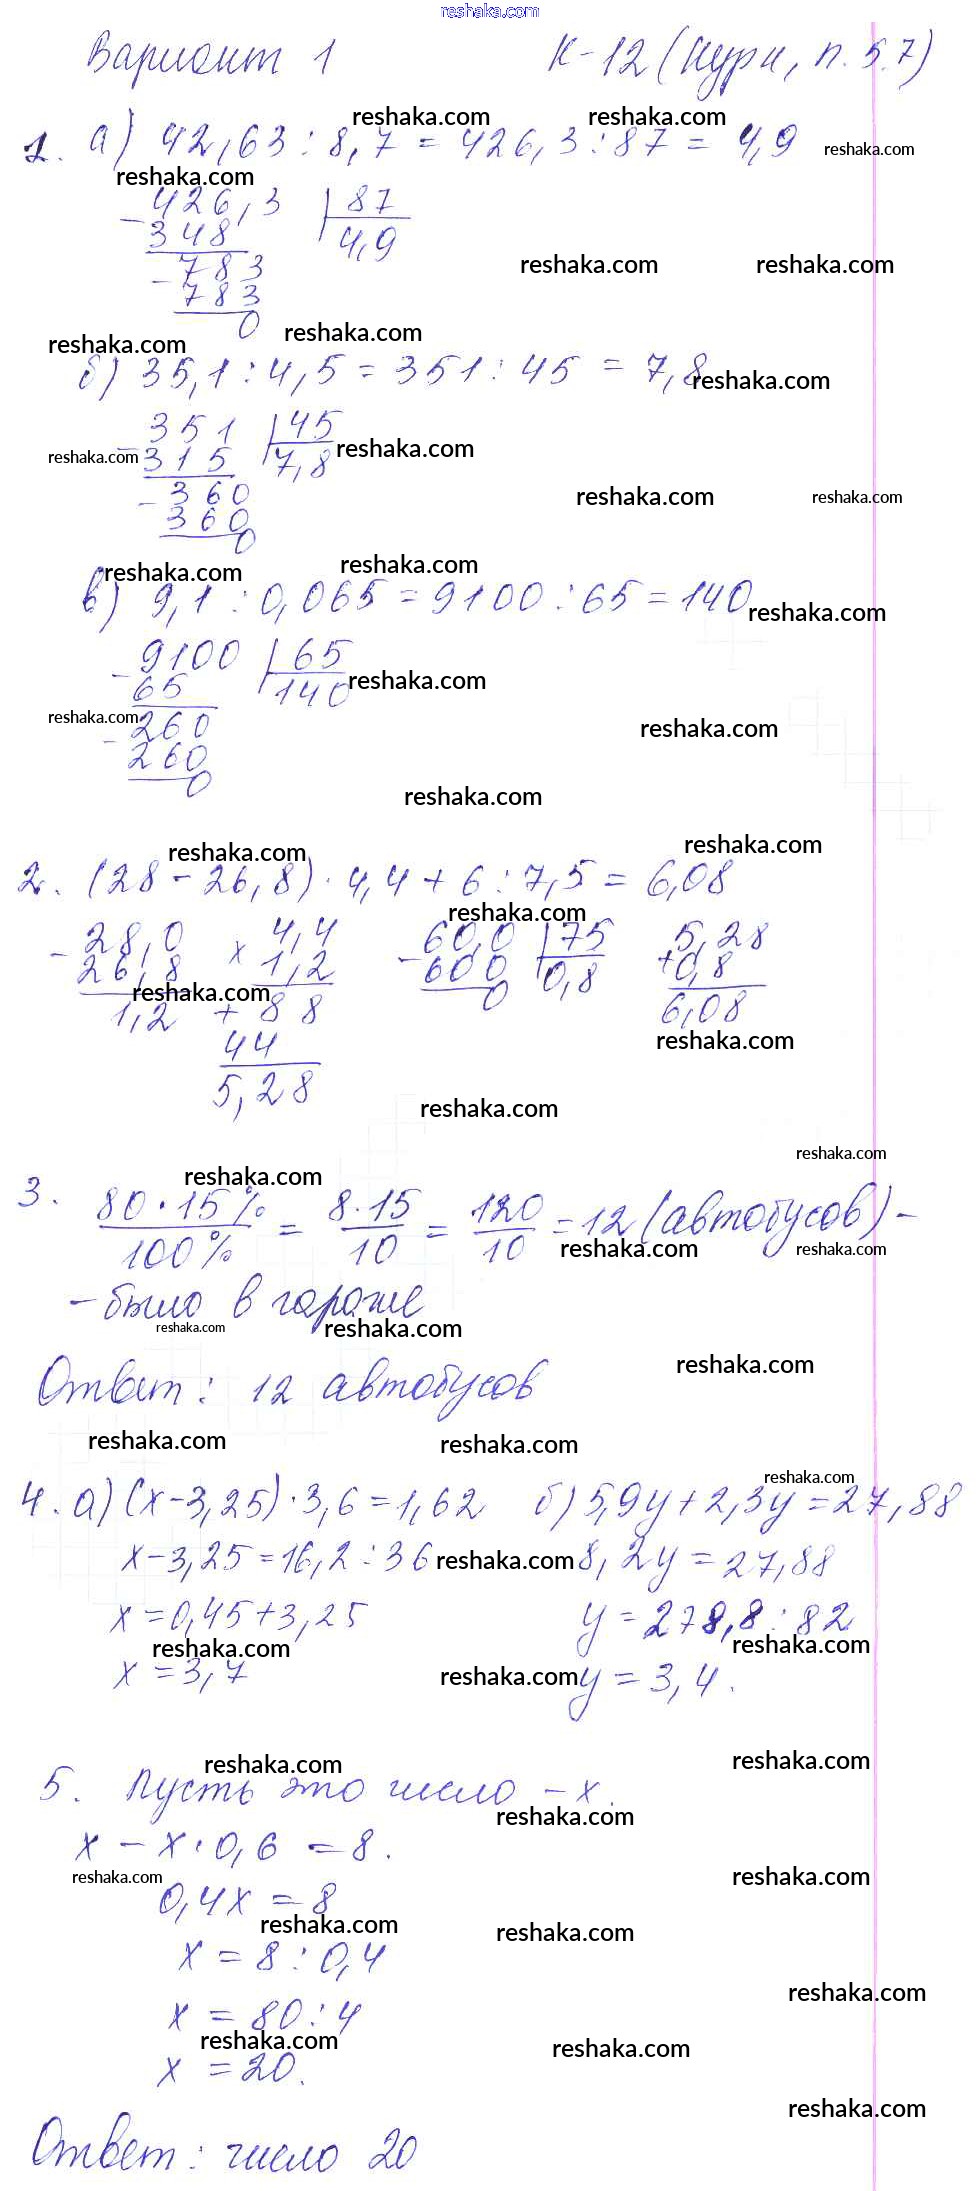 reshaka.com
Вариант 1 К-12 (Нурк, п. 5.7)
reshaka.com reshaka.com
1. а) 42,63 : 8,7 = 426,3 : 87 = 4,9 reshaka.com
reshaka.com
- 426,3 | 87
348 4,9
reshaka.com reshaka.com
- 783
783
0
reshaka.com reshaka.com
б) 35,1 : 4,5 = 351 : 45 = 7,8 reshaka.com
- 351 | 45
reshaka.com 315 7,8 reshaka.com
- 360 reshaka.com reshaka.com
360
0
reshaka.com reshaka.com
в) 9,1 : 0,065 = 9100 : 65 = 140 reshaka.com
- 9100 | 65
65 140 reshaka.com
reshaka.com - 260 reshaka.com
260
0
reshaka.com
reshaka.com reshaka.com
2. (28 - 26,8) · 4,4 + 6 : 7,5 = 6,08
reshaka.com
- 28,0 × 4,4 - 60,0 | 75 5,28
26,8 1,2 600 0,8 + 0,8
reshaka.com
1,2 + 88 0 6,08
reshaka.com
44
5,28
reshaka.com
reshaka.com
reshaka.com
3. 80 · 15% / 100% = 8 · 15 / 10 = 120 / 10 = 12 (автобусов) -
reshaka.com reshaka.com
- было в гараже
reshaka.com reshaka.com
reshaka.com
Ответ: 12 автобусов
reshaka.com reshaka.com
reshaka.com
4. а) (x - 3,25) · 3,6 = 1,62 б) 5,9y + 2,3y = 27,88
x - 3,25 = 16,2 : 36 reshaka.com 8,2y = 27,88
x = 0,45 + 3,25 y = 278,8 : 82
reshaka.com reshaka.com
x = 3,7 reshaka.com y = 3,4.
reshaka.com reshaka.com
5. Пусть это число - x.
reshaka.com
x - x · 0,6 = 8.
reshaka.com reshaka.com
0,4x = 8
reshaka.com reshaka.com
x = 8 : 0,4
reshaka.com
x = 80 : 4
reshaka.com reshaka.com
x = 20.
reshaka.com
Ответ: число 20